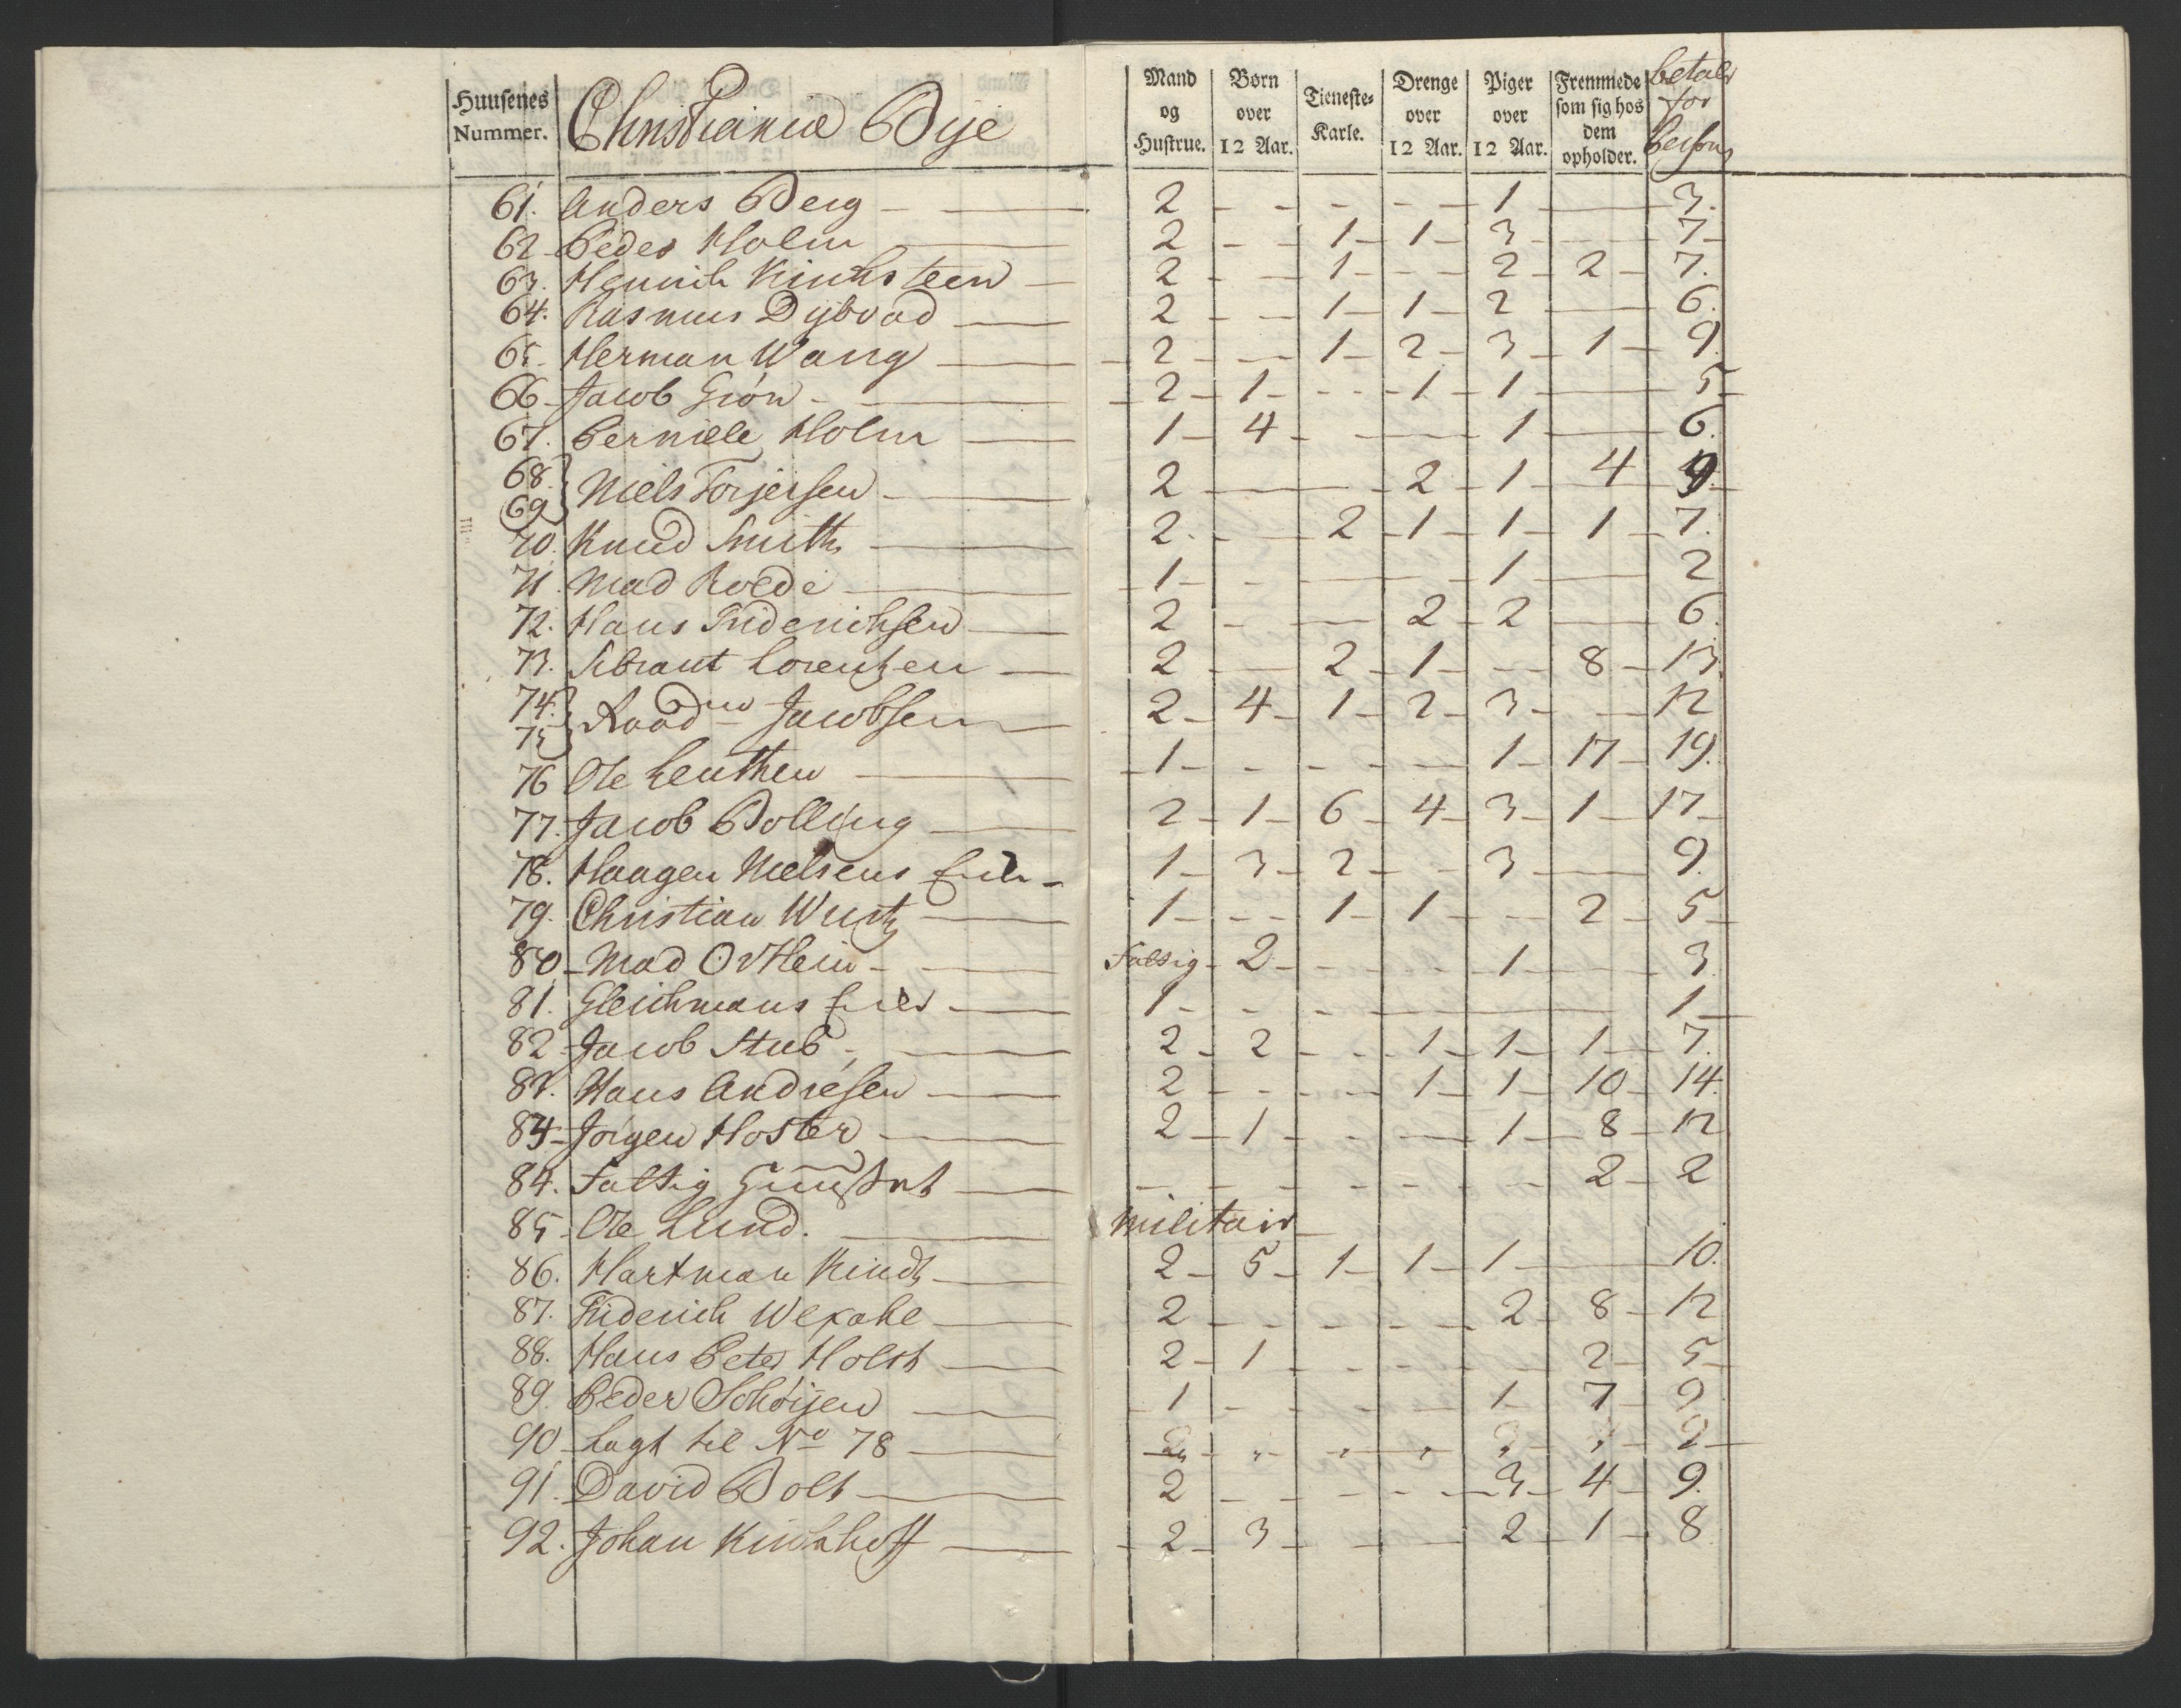 Huusenes Nummer. Christiania Bye Mand og Hustrue. Børn over 12 Aar. Tieneste-Karle. Drenge over 12 Aar. Piger over 12 Aar. Fremmede som sig hos dem opholder. betaler for Persons
61. Anders Berg 2 - - - - 1 - 3.
62 Peder Holm 2 - 1 1 3 - 7
63. Henrich Kinchsteen 2 - 1 - 2 2 7.
64. Rasmus Dybvad 2 - 1 1 2 - 6.
65. Herman Wang 2 - 1 2 3 1 9.
66 Jacob Grøn 2 1 - 1 1 - 5
67. Pernille Holm 1 4 - - 1 - 6.
68. 69 Niels Torjersen 2 - - 2 1 4 9
70. Knud Smith 2 - 2 1 1 1 7.
71. Mad Roede 1 - - - 1 - 2
72. Hans Friderichsen 2 - - 2 2 - 6.
73. Sibrant Lorentzen 2 - 2 1 - 8 13.
74. 75 Raadm Jacobsen 2 4 1 2 3 - 12
76 Ole Leuthen 1 - - - 1 17 19.
77. Jacob Bolling 2 1 6 4 3 1 17
78. Haagen Nielsens Enke 1 3 2 - 3 - 9.
79. Christian Wurtz 1 - 1 1 - 2 5
80 Mad Ovthein Fattig 2 - - 1 - 3
81. Gleichmans Enke 1 - - - - - 1
82 Jacob Stub 2 2 - 1 1 1 7.
83. Hans Andresen 2 - - 1 1 10 14.
84 Jørgen Hoster 2 1 - - 1 8 12
84. Fattig - - - - - 2 2
85 Ole Lund. militair
86. Hartman Kindt 2 5 1 1 1 - 10.
87. Friderich Wexahl 2 - - - 2 8 12
88. Hans Peter Holst 2 1 - - - 2 5
89. Peder Schøijen 1 - - - 1 7 9
90 Lagt til No 78
91. David Bolt 2 - - - 3 4 9.
92. Johan Kirchhoff 2 3 - - 2 1 8